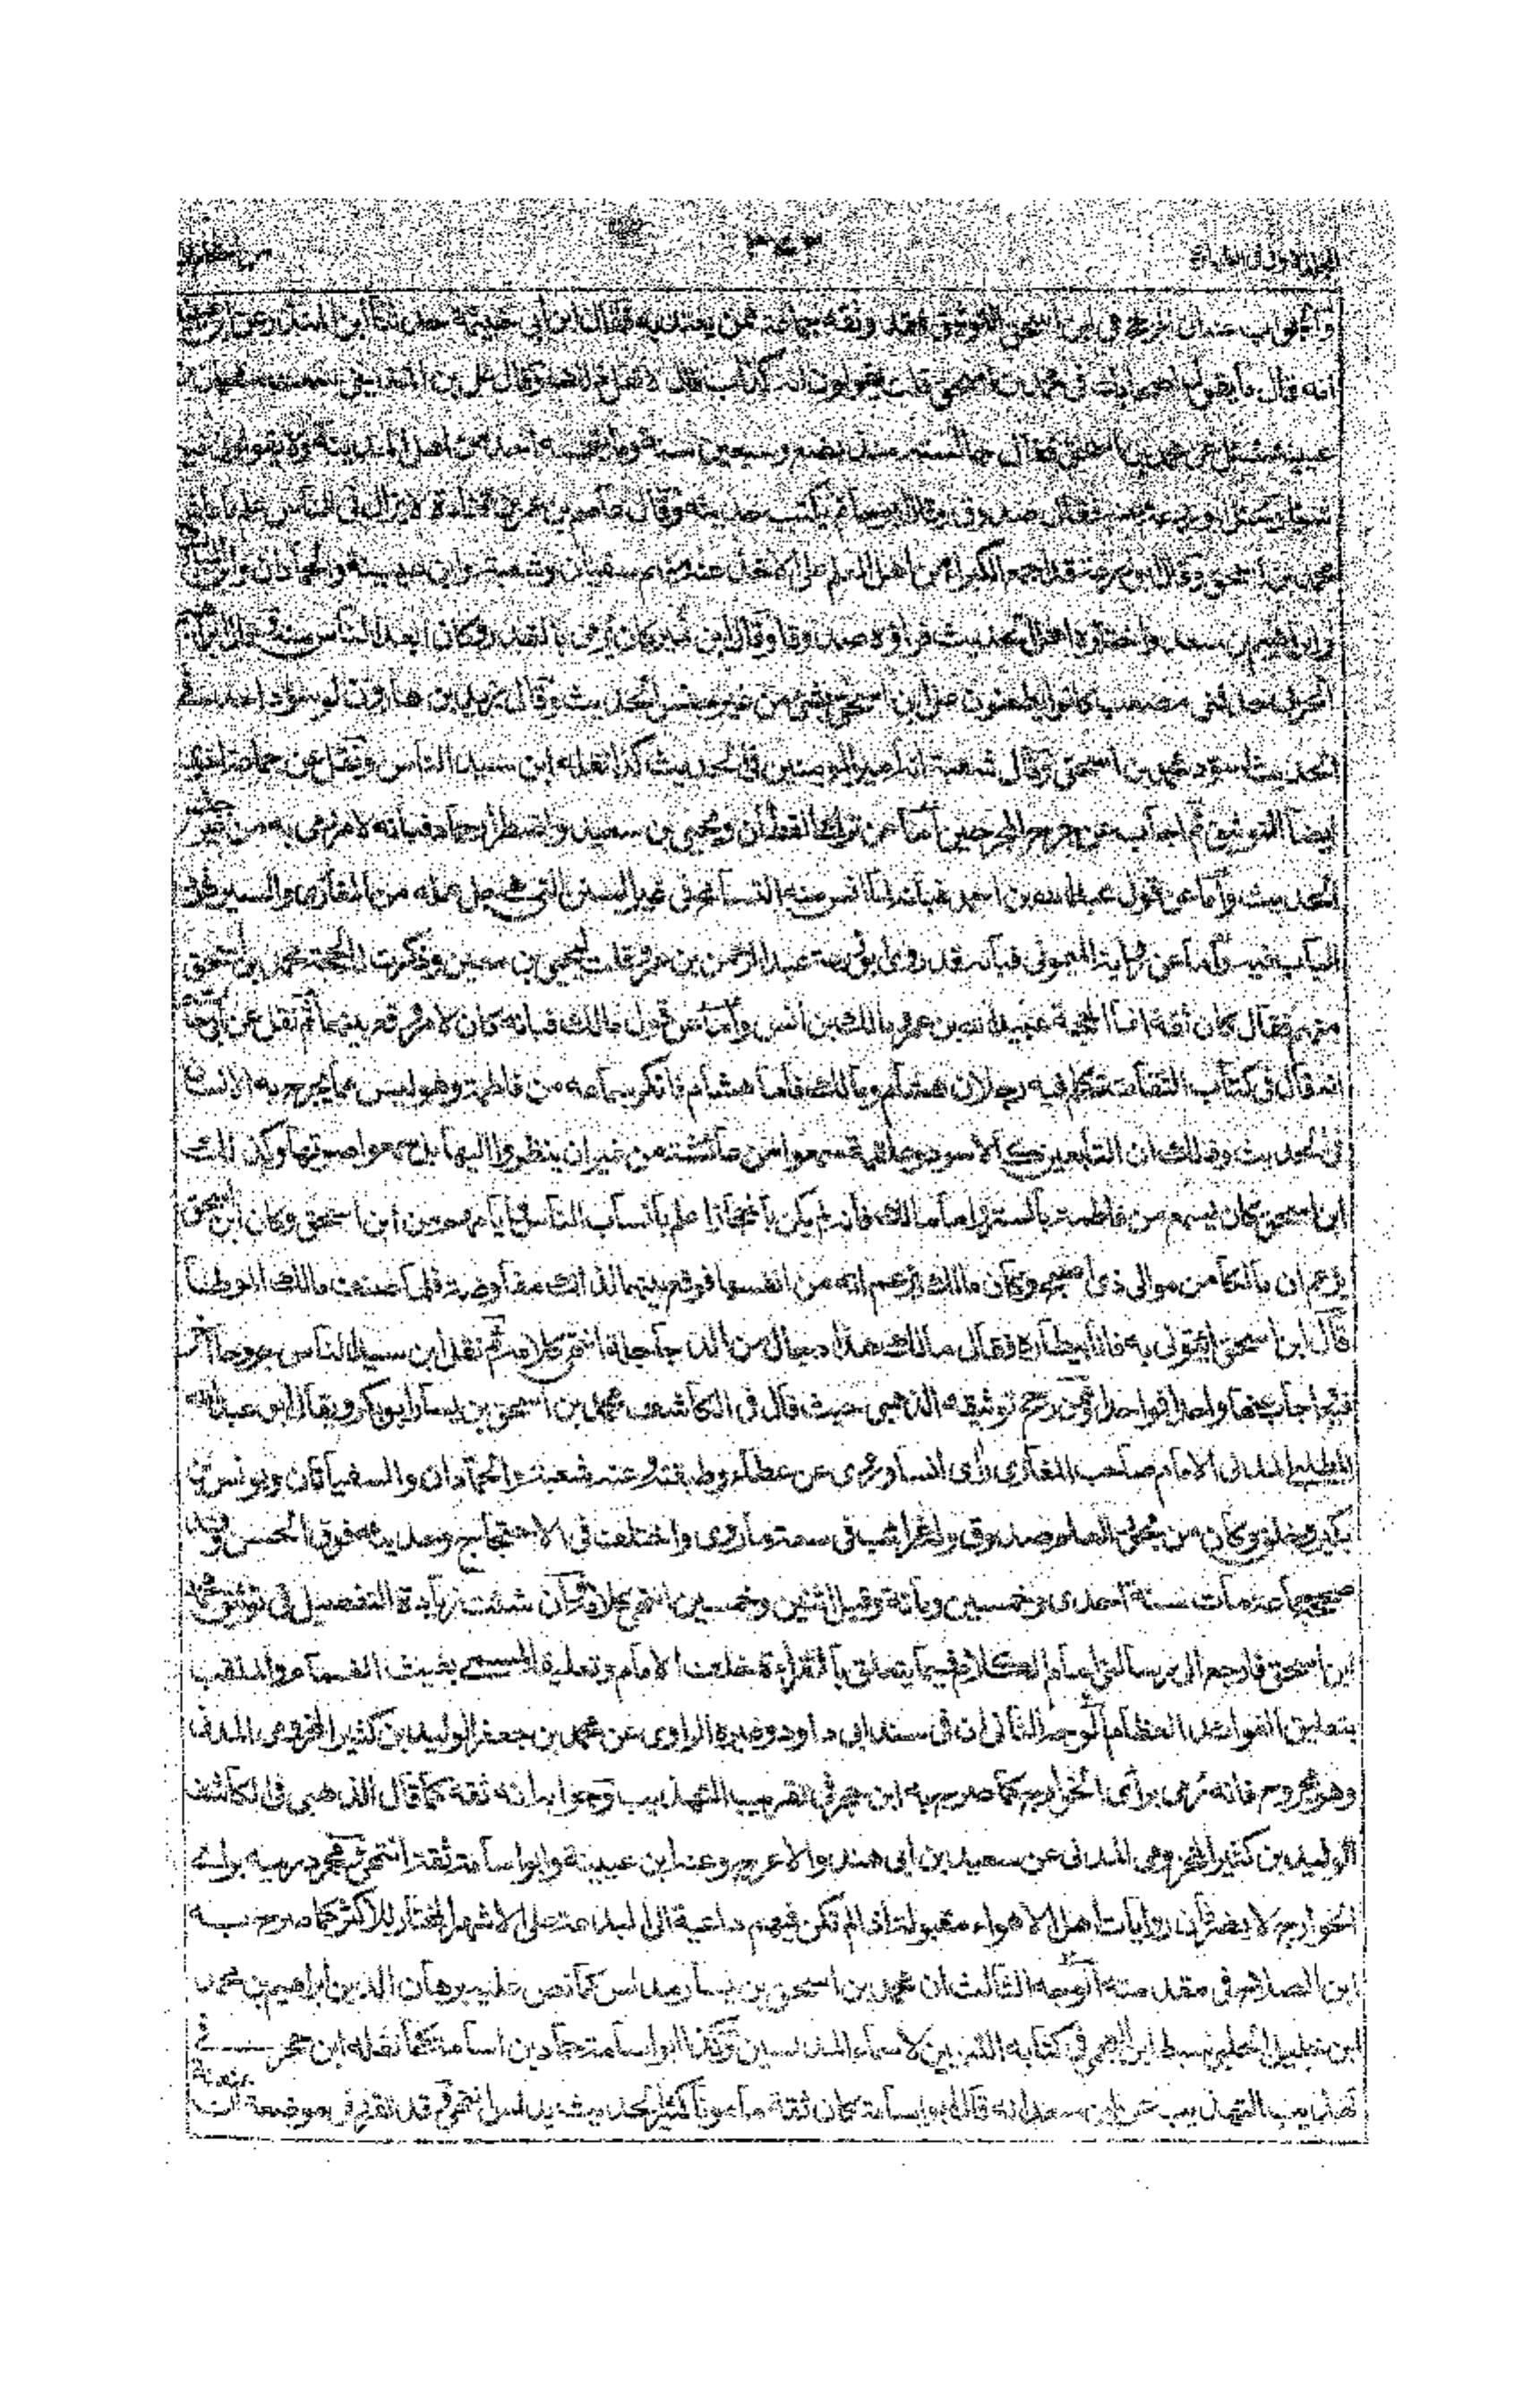 ٣٧٣
والجواب عندي الارجح في ابن اسحق التوثيق فقد وثقه جماعة ممن يعتد به فقال ابن ابي خيثمة حدثنا ابن المنذر عن ابن
انه قال ما يقول اصحابك في محمد بن اسحق قلت يقولون انه كذاب قال لا تقل ذلك وقال علي بن المديني سمعت سفيان بن
عيينة سئل عن محمد بن اسحق فقال جالسته منذ بضع وسبعين سنة وما يتهمه احد من اهل المدينة ولا يقول فيه
شيئا وسئل ابو زرعة عنه فقال صدوق وقال ابو حاتم يكتب حديثه وقال عاصم بن عمر بن قتادة لا يزال في الناس علم ما
محمد بن اسحق وقال ابو زرعة قد اجمع الكبراء من اهل العلم على الاخذ عنه منهم سفيان وشعبة وابن عيينة والحمادان وابن
وابراهيم بن سعد واختبره اهل الحديث فراوه صدوقا وقال ابن نمير كان يرمى بالقدر وكان ابعد الناس منه
الحربي حدثني مصعب كانوا يطعنون على ابن اسحق بشيء من غير جنس الحديث وقال يزيد بن هارون لو سود احد في
الحديث لسود محمد بن اسحق وقال شعبة انه امير المؤمنين في الحديث كذا نقله ابن سيد الناس ونقل عن جماعة اخرى
ايضا التوثيق ثم اجاب عن جرح الجارحين اما عن ترك القطان ويحيى بن سعيد
الحديث واما عن قول عبد الله بن احمد فبانه انما انس منه التسامح في غير السنن التي جل علمه من المغازي والسير
الباب فيه واما عن رواية الميموني فبانه قد روى ابو زرعة عبد الرحمن بن عمرو قلت ليحيى بن معين وذكرت له الحجة محمد بن اسحق
منهم فقال كان ثقة انما الحجة عبيد الله بن عمر ومالك بن انس واما عن قول مالك فبانه كان لامر وقع بينهما ثم نقل عن ابن حبان
انه قال في كتاب الثقات تكلم فيه رجلان هشام ومالك فاما هشام فانكر سماعه من فاطمة وهو ليس مما يجرح به الانسان
في الحديث وذلك ان التابعين كالاسود وعلقمة سمعوا من عائشة من غير ان ينظروا اليها بل سمعوا صوتها وكذلك
ابن اسحق كان يسمع من فاطمة بالستر واما مالك فانه لم يكن بالحجاز اعلم بانساب الناس وايامهم من ابن اسحق وكان ابن اسحق
يزعم ان مالكا من موالي ذي اصبح وكان مالك يزعم انه من انفسها فوقع بينهما لذلك مفاوضة فلما صنف مالك الموطا
قال ابن اسحق ايتوني به فانا بيطاره فقال مالك هذا دجال من الدجاجلة انتهى كلامه ثم نقل ابن سيد الناس جروحا اخر
فيه واجاب عنها واحدا فواحدا وممن رجح توثيقه الذهبي حيث قال في الكاشف محمد بن اسحق بن يسار ابو بكر ويقال ابو عبد الله
المطلبي المدني الامام صاحب المغازي رأى انسا وروى عن عطاء وطبقته وعنه شعبة والحمادان والسفيانان ويونس بن
بكير وخلق وكان من بحور العلم صدوق وله غرائب في سعة ما روى واختلف في الاحتجاج وحديثه فوق الحسن وقد
صححه جماعة مات سنة احدى وخمسين ومائة وقيل اثنين وخمسين انتهى كلامه وان شئت زيادة التفصيل في توثيق محمد
ابن اسحق فارجع الى رسالتي امام الكلام فيما يتعلق بالقراءة خلف الامام وتعليقه المسمى بغيث الغمام والملقب
بتعليق الفوائد العظام الوجه الثاني ان في سند ابي داود وغيره الراوي عن محمد بن جعفر الوليد بن كثير المخزومي المدني
وهو مجروح فانه رمي براي الخوارج كما صرح به ابن حجر في تقريب التهذيب وجوابه انه ثقة كما قال الذهبي في الكاشف
الوليد بن كثير المخزومي المدني عن سعيد بن ابي هند والاعرج وعنه ابن عيينة وابو اسامة ثقة انتهى ومجرد رميه براي
الخوارج لا يضر لان روايات اهل الاهواء مقبولة اذا لم تكن فيهم داعية الى البدعة على الاشهر المختار للاكثر كما صرح به
ابن الصلاح في مقدمته الوجه الثالث ان محمد بن اسحق بن يسار مدلس كما نص عليه برهان الدين ابراهيم بن محمد
ابن خليل الحلبي سبط ابن العجمي في كتابه التبيين لاسماء المدلسين وكذا ابو اسامة حماد بن اسامة كما نقله ابن حجر في
تهذيب التهذيب عن ابن سعد انه قال ابو اسامة كان ثقة مامونا كثير الحديث يدلس انتهى وقد تقرر في موضعه ان
عنعنة